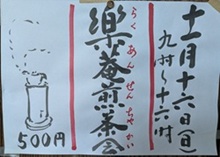 十一月十六日(日)
九時〜十六時
樂庵煎茶会
らくあんせんちゃかい
500円